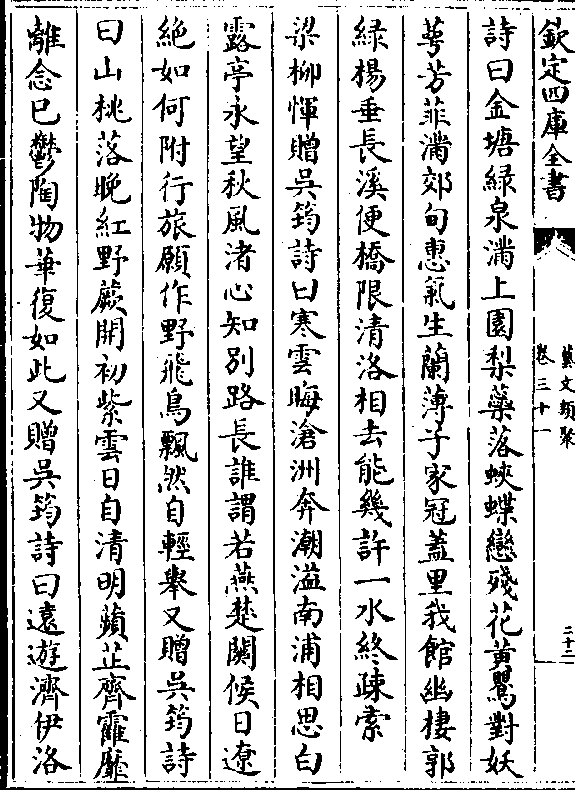 欽定四庫全書
藝文類聚
卷三十一
二十二
詩曰金塘緑泉滿上園梨藥落蛺蝶戀殘花黃鸎對妖
萼芳菲滿郊甸惠氣生蘭薄子家冠蓋里我館幽棲郭
緑楊垂長溪便橋限清洛相去能幾許一水終疎索
梁柳惲贈吳筠詩曰寒雲晦滄洲奔潮溢南浦相思白
露亭永望秋風渚心知別路長誰謂若燕楚關候日遼
絶如何附行旅願作野飛鳥飄然自輕舉又贈吳筠詩
曰山桃落晚紅野蕨開初紫雲日自清明蘋芷齊靃靡
離念已鬱陶物華復如此又贈吳筠詩曰遠遊濟伊洛